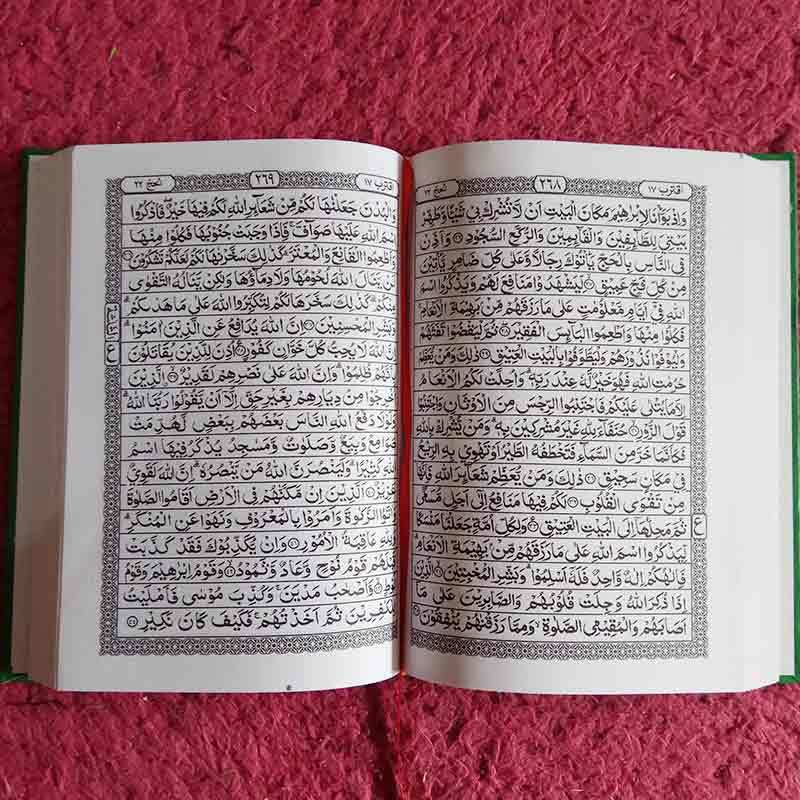 اقترب ١٧ ٢٦٨ الحج ٢٢
وَاِذْ بَوَّاْنَا لِاِبْرٰهِيْمَ مَكَانَ الْبَيْتِ اَنْ لَّا تُشْرِكْ بِيْ شَيْـًٔا وَّطَهِّرْ
بَيْتِيَ لِلطَّآئِفِيْنَ وَالْقَآئِمِيْنَ وَالرُّكَّعِ السُّجُوْدِ ۝٢٦ وَاَذِّنْ
فِى النَّاسِ بِالْحَجِّ يَاْتُوْكَ رِجَالًا وَّعَلٰى كُلِّ ضَامِرٍ يَّاْتِيْنَ
مِنْ كُلِّ فَجٍّ عَمِيْقٍ ۝٢٧ لِّيَشْهَدُوْا مَنَافِعَ لَهُمْ وَيَذْكُرُوا اسْمَ
اللّٰهِ فِيْٓ اَيَّامٍ مَّعْلُوْمٰتٍ عَلٰى مَا رَزَقَهُمْ مِّنْۢ بَهِيْمَةِ الْاَنْعَامِ ۚ
فَكُلُوْا مِنْهَا وَاَطْعِمُوا الْبَآئِسَ الْفَقِيْرَ ۝٢٨ ثُمَّ لْيَقْضُوْا تَفَثَهُمْ
وَلْيُوْفُوْا نُذُوْرَهُمْ وَلْيَطَّوَّفُوْا بِالْبَيْتِ الْعَتِيْقِ ۝٢٩ ذٰلِكَ وَمَنْ يُّعَظِّمْ
حُرُمٰتِ اللّٰهِ فَهُوَ خَيْرٌ لَّهٗ عِنْدَ رَبِّهٖ ؕ وَاُحِلَّتْ لَكُمُ الْاَنْعَامُ
اِلَّا مَا يُتْلٰى عَلَيْكُمْ فَاجْتَنِبُوا الرِّجْسَ مِنَ الْاَوْثَانِ وَاجْتَنِبُوْا
قَوْلَ الزُّوْرِ ۝٣٠ حُنَفَآءَ لِلّٰهِ غَيْرَ مُشْرِكِيْنَ بِهٖ ؕ وَمَنْ يُّشْرِكْ بِاللّٰهِ
فَكَاَنَّمَا خَرَّ مِنَ السَّمَآءِ فَتَخْطَفُهُ الطَّيْرُ اَوْ تَهْوِيْ بِهِ الرِّيْحُ
فِيْ مَكَانٍ سَحِيْقٍ ۝٣١ ذٰلِكَ وَمَنْ يُّعَظِّمْ شَعَآئِرَ اللّٰهِ فَاِنَّهَا
مِنْ تَقْوَى الْقُلُوْبِ ۝٣٢ لَكُمْ فِيْهَا مَنَافِعُ اِلٰٓى اَجَلٍ مُّسَمًّى
ثُمَّ مَحِلُّهَآ اِلَى الْبَيْتِ الْعَتِيْقِ ۝٣٣ وَلِكُلِّ اُمَّةٍ جَعَلْنَا مَنْسَكًا
لِّيَذْكُرُوا اسْمَ اللّٰهِ عَلٰى مَا رَزَقَهُمْ مِّنْۢ بَهِيْمَةِ الْاَنْعَامِ ؕ
فَاِلٰهُكُمْ اِلٰهٌ وَّاحِدٌ فَلَهٗٓ اَسْلِمُوْا ؕ وَبَشِّرِ الْمُخْبِتِيْنَ ۝٣٤ الَّذِيْنَ
اِذَا ذُكِرَ اللّٰهُ وَجِلَتْ قُلُوْبُهُمْ وَالصّٰبِرِيْنَ عَلٰى مَآ
اَصَابَهُمْ وَالْمُقِيْمِى الصَّلٰوةِ ۙ وَمِمَّا رَزَقْنٰهُمْ يُنْفِقُوْنَ ۝٣٥
ع
اقترب ١٧ ٢٦٩ الحج ٢٢
وَالْبُدْنَ جَعَلْنٰهَا لَكُمْ مِّنْ شَعَآئِرِ اللّٰهِ لَكُمْ فِيْهَا خَيْرٌ ۖ فَاذْكُرُوا
اسْمَ اللّٰهِ عَلَيْهَا صَوَآفَّ ۚ فَاِذَا وَجَبَتْ جُنُوْبُهَا فَكُلُوْا مِنْهَا
وَاَطْعِمُوا الْقَانِعَ وَالْمُعْتَرَّ ؕ كَذٰلِكَ سَخَّرْنٰهَا لَكُمْ لَعَلَّكُمْ تَشْكُرُوْنَ ۝٣٦
لَنْ يَّنَالَ اللّٰهَ لُحُوْمُهَا وَلَا دِمَآؤُهَا وَلٰكِنْ يَّنَالُهُ التَّقْوٰى
مِنْكُمْ ؕ كَذٰلِكَ سَخَّرَهَا لَكُمْ لِتُكَبِّرُوا اللّٰهَ عَلٰى مَا هَدٰىكُمْ ؕ
وَبَشِّرِ الْمُحْسِنِيْنَ ۝٣٧ اِنَّ اللّٰهَ يُدٰفِعُ عَنِ الَّذِيْنَ اٰمَنُوْا ؕ
اِنَّ اللّٰهَ لَا يُحِبُّ كُلَّ خَوَّانٍ كَفُوْرٍ ۝٣٨ اُذِنَ لِلَّذِيْنَ يُقٰتَلُوْنَ
بِاَنَّهُمْ ظُلِمُوْا ؕ وَاِنَّ اللّٰهَ عَلٰى نَصْرِهِمْ لَقَدِيْرُ ۝٣٩ الَّذِيْنَ
اُخْرِجُوْا مِنْ دِيَارِهِمْ بِغَيْرِ حَقٍّ اِلَّآ اَنْ يَّقُوْلُوْا رَبُّنَا اللّٰهُ ؕ
وَلَوْلَا دَفْعُ اللّٰهِ النَّاسَ بَعْضَهُمْ بِبَعْضٍ لَّهُدِّمَتْ
صَوَامِعُ وَبِيَعٌ وَّصَلَوٰتٌ وَّمَسٰجِدُ يُذْكَرُ فِيْهَا اسْمُ
اللّٰهِ كَثِيْرًا ؕ وَلَيَنْصُرَنَّ اللّٰهُ مَنْ يَّنْصُرُهٗ ؕ اِنَّ اللّٰهَ لَقَوِيٌّ
عَزِيْزٌ ۝٤٠ اَلَّذِيْنَ اِنْ مَّكَّنّٰهُمْ فِى الْاَرْضِ اَقَامُوا الصَّلٰوةَ
وَاٰتَوُا الزَّكٰوةَ وَاَمَرُوْا بِالْمَعْرُوْفِ وَنَهَوْا عَنِ الْمُنْكَرِ ؕ
وَلِلّٰهِ عَاقِبَةُ الْاُمُوْرِ ۝٤١ وَاِنْ يُّكَذِّبُوْكَ فَقَدْ كَذَّبَتْ
قَبْلَهُمْ قَوْمُ نُوْحٍ وَّعَادٌ وَّثَمُوْدُ ۝٤٢ وَقَوْمُ اِبْرٰهِيْمَ وَقَوْمُ
لُوْطٍ ۝٤٣ وَّاَصْحٰبُ مَدْيَنَ ۚ وَكُذِّبَ مُوْسٰى فَاَمْلَيْتُ
لِلْكٰفِرِيْنَ ثُمَّ اَخَذْتُهُمْ ۚ فَكَيْفَ كَانَ نَكِيْرِ ۝٤٤
ع